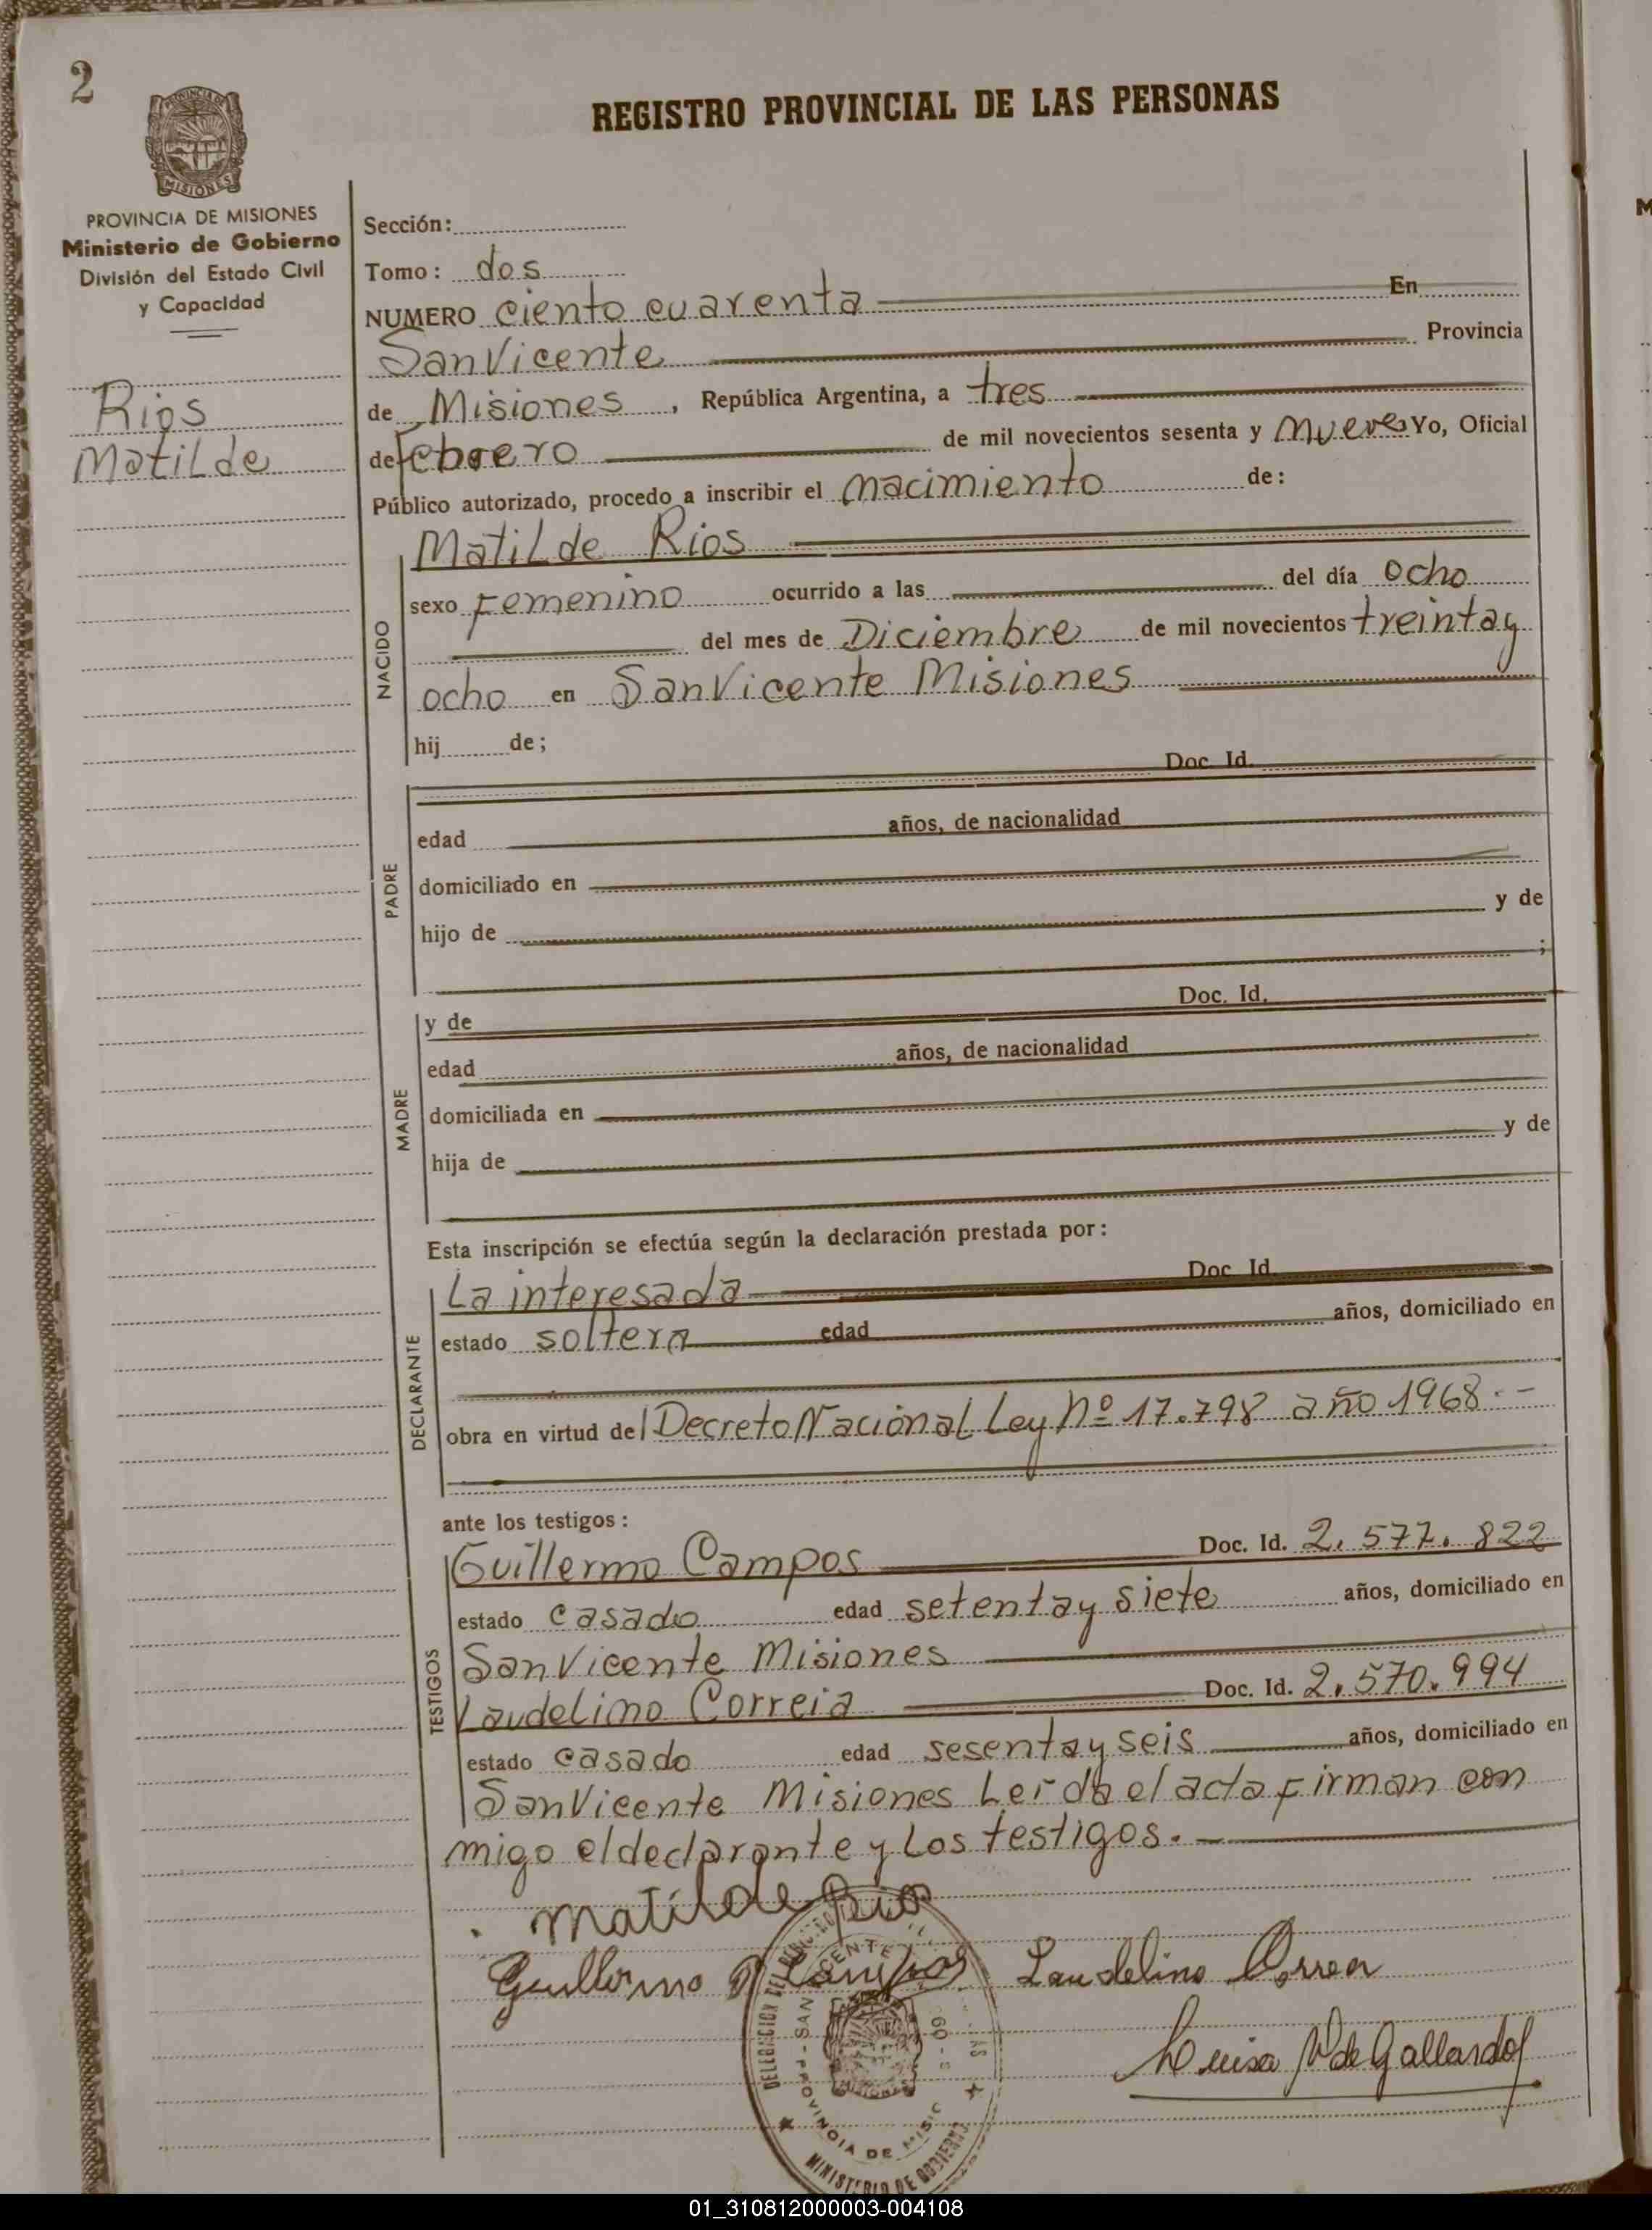 2
REGISTRO PROVINCIAL DE LAS PERSONAS
PROVINCIA DE
MISIONES
PROVINCIA DE MISIONES
Ministerio de Gobierno
División del Estado Civil
y Capacidad
Rios
Matilde
Sección:
Tomo: dos
NUMERO ciento cuarenta En
San Vicente Provincia
de Misiones, República Argentina, a tres
de Febrero de mil novecientos sesenta y nueve Yo, Oficial
Público autorizado, procedo a inscribir el nacimiento de:
NACIDO
Matilde Rios
sexo Femenino ocurrido a las del día ocho
del mes de Diciembre de mil novecientos treinta y
ocho en San Vicente Misiones
hij de;
PADRE
Doc. Id.
edad años, de nacionalidad
domiciliado en
hijo de y de
;
MADRE
y de Doc. Id.
edad años, de nacionalidad
domiciliada en
hija de y de
Esta inscripción se efectúa según la declaración prestada por:
DECLARANTE
La interesada Doc. Id.
estado soltera edad años, domiciliado en
obra en virtud del Decreto Nacional Ley Nº 17.798 año 1968.-
ante los testigos:
TESTIGOS
Guillermo Campos Doc. Id. 2.577.822
estado casado edad setenta y siete años, domiciliado en
San Vicente Misiones
Laudelino Correia Doc. Id. 2.570.994
estado casado edad sesenta y seis años, domiciliado en
San Vicente Misiones Leída el acta firman con
migo el declarante y los testigos.-
Matilde Rios
Guillermo Campos Laudelino Correa
Luisa V de Gallardo
DELEGACION DEL REGISTRO
SAN VICENTE
PROVINCIA DE MISIONES
MINISTERIO DE GOBIERNO
01_310812000003-004108